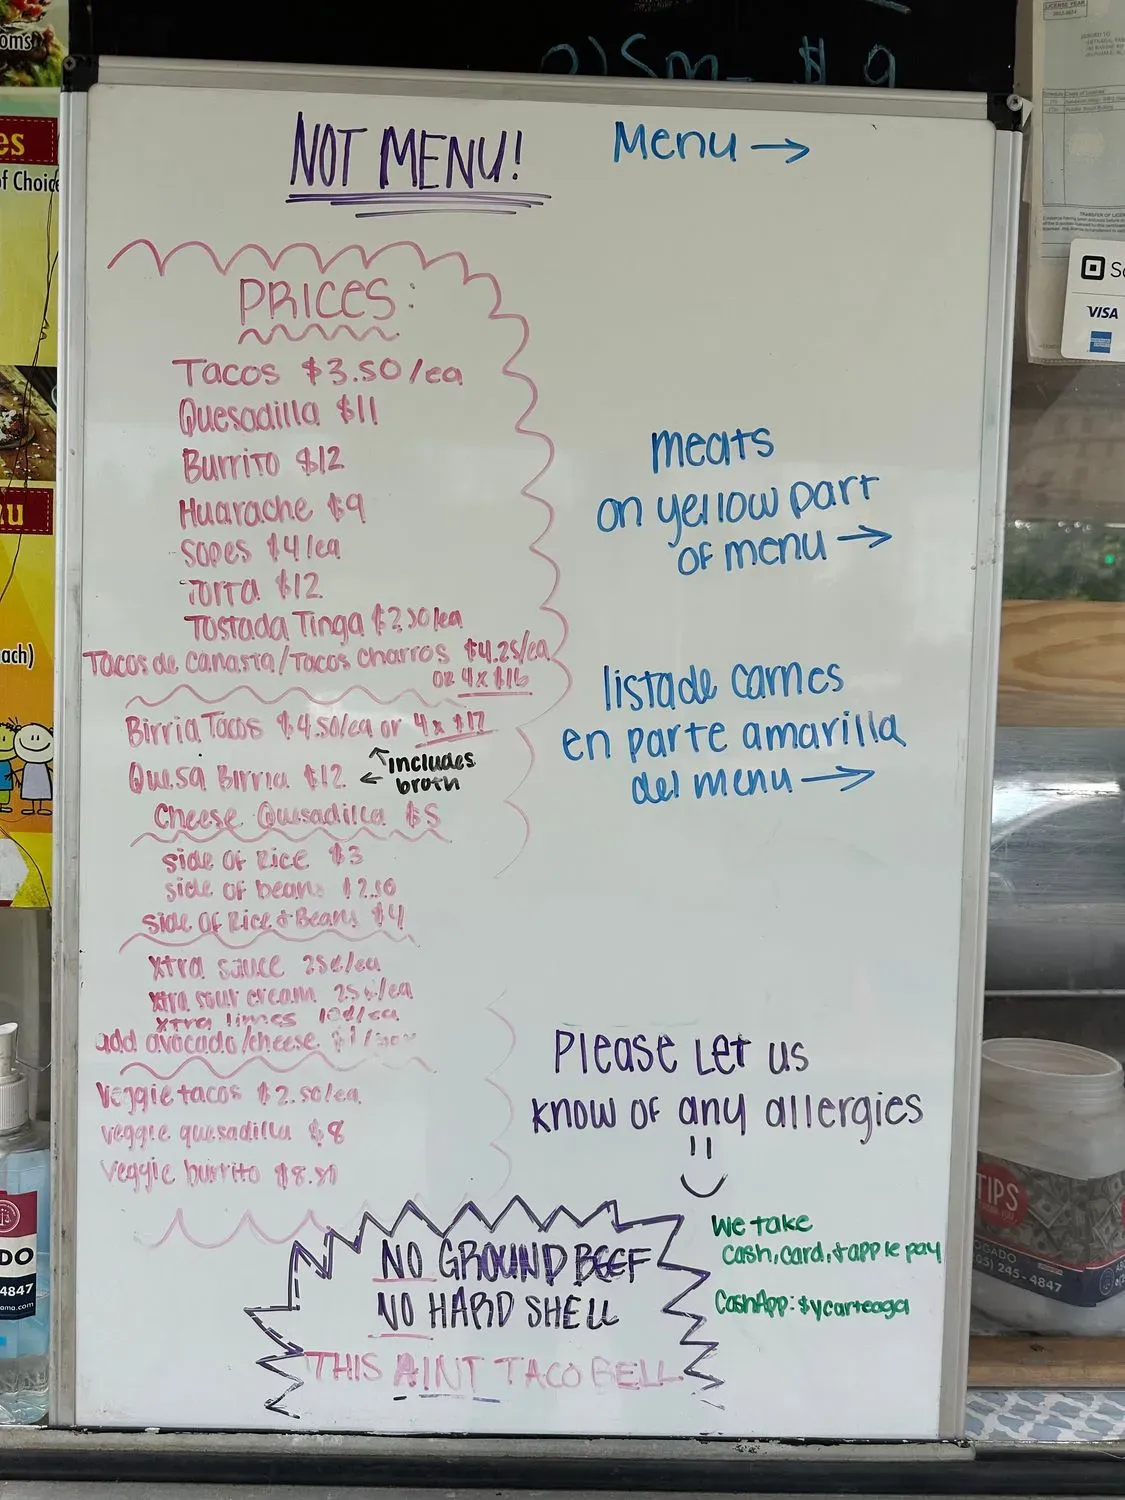 oms
es
of Choice
u
ach)
2) Sm- $ 9
NOT MENU!
Menu →
PRICES:
Tacos $3.50/ea
Quesadilla $11
Burrito $12
Huarache $9
Sopes $4/ea
Torta $12
Tostada Tinga $2.50/ea
Tacos de Canasta/Tacos Charros $4.25/ea
or 4 x $16
Birria Tacos $4.50/ea or 4 x $17
Quesa Birria $12
includes
broth
Cheese Quesadilla $5
side of Rice $3
side of beans $2.50
side of Rice + Beans $4
xtra sauce 25¢/ea
xtra sour cream 25¢/ea
xtra limes 10¢/ea
add avocado/cheese $1
Veggie tacos $2.50/ea
veggie quesadilla $8
veggie burrito $8.50
meats
on yellow part
of menu →
lista de carnes
en parte amarilla
del menu →
Please Let us
know of any allergies
NO GROUND BEEF
NO HARD SHELL
THIS AINT TACO BELL
We take
cash, card, + apple pay
CashApp: $ycarteaga
LICENSE YEAR
VISA
TIPS
OGADO
05) 245-4847
DO
4847
ama.com